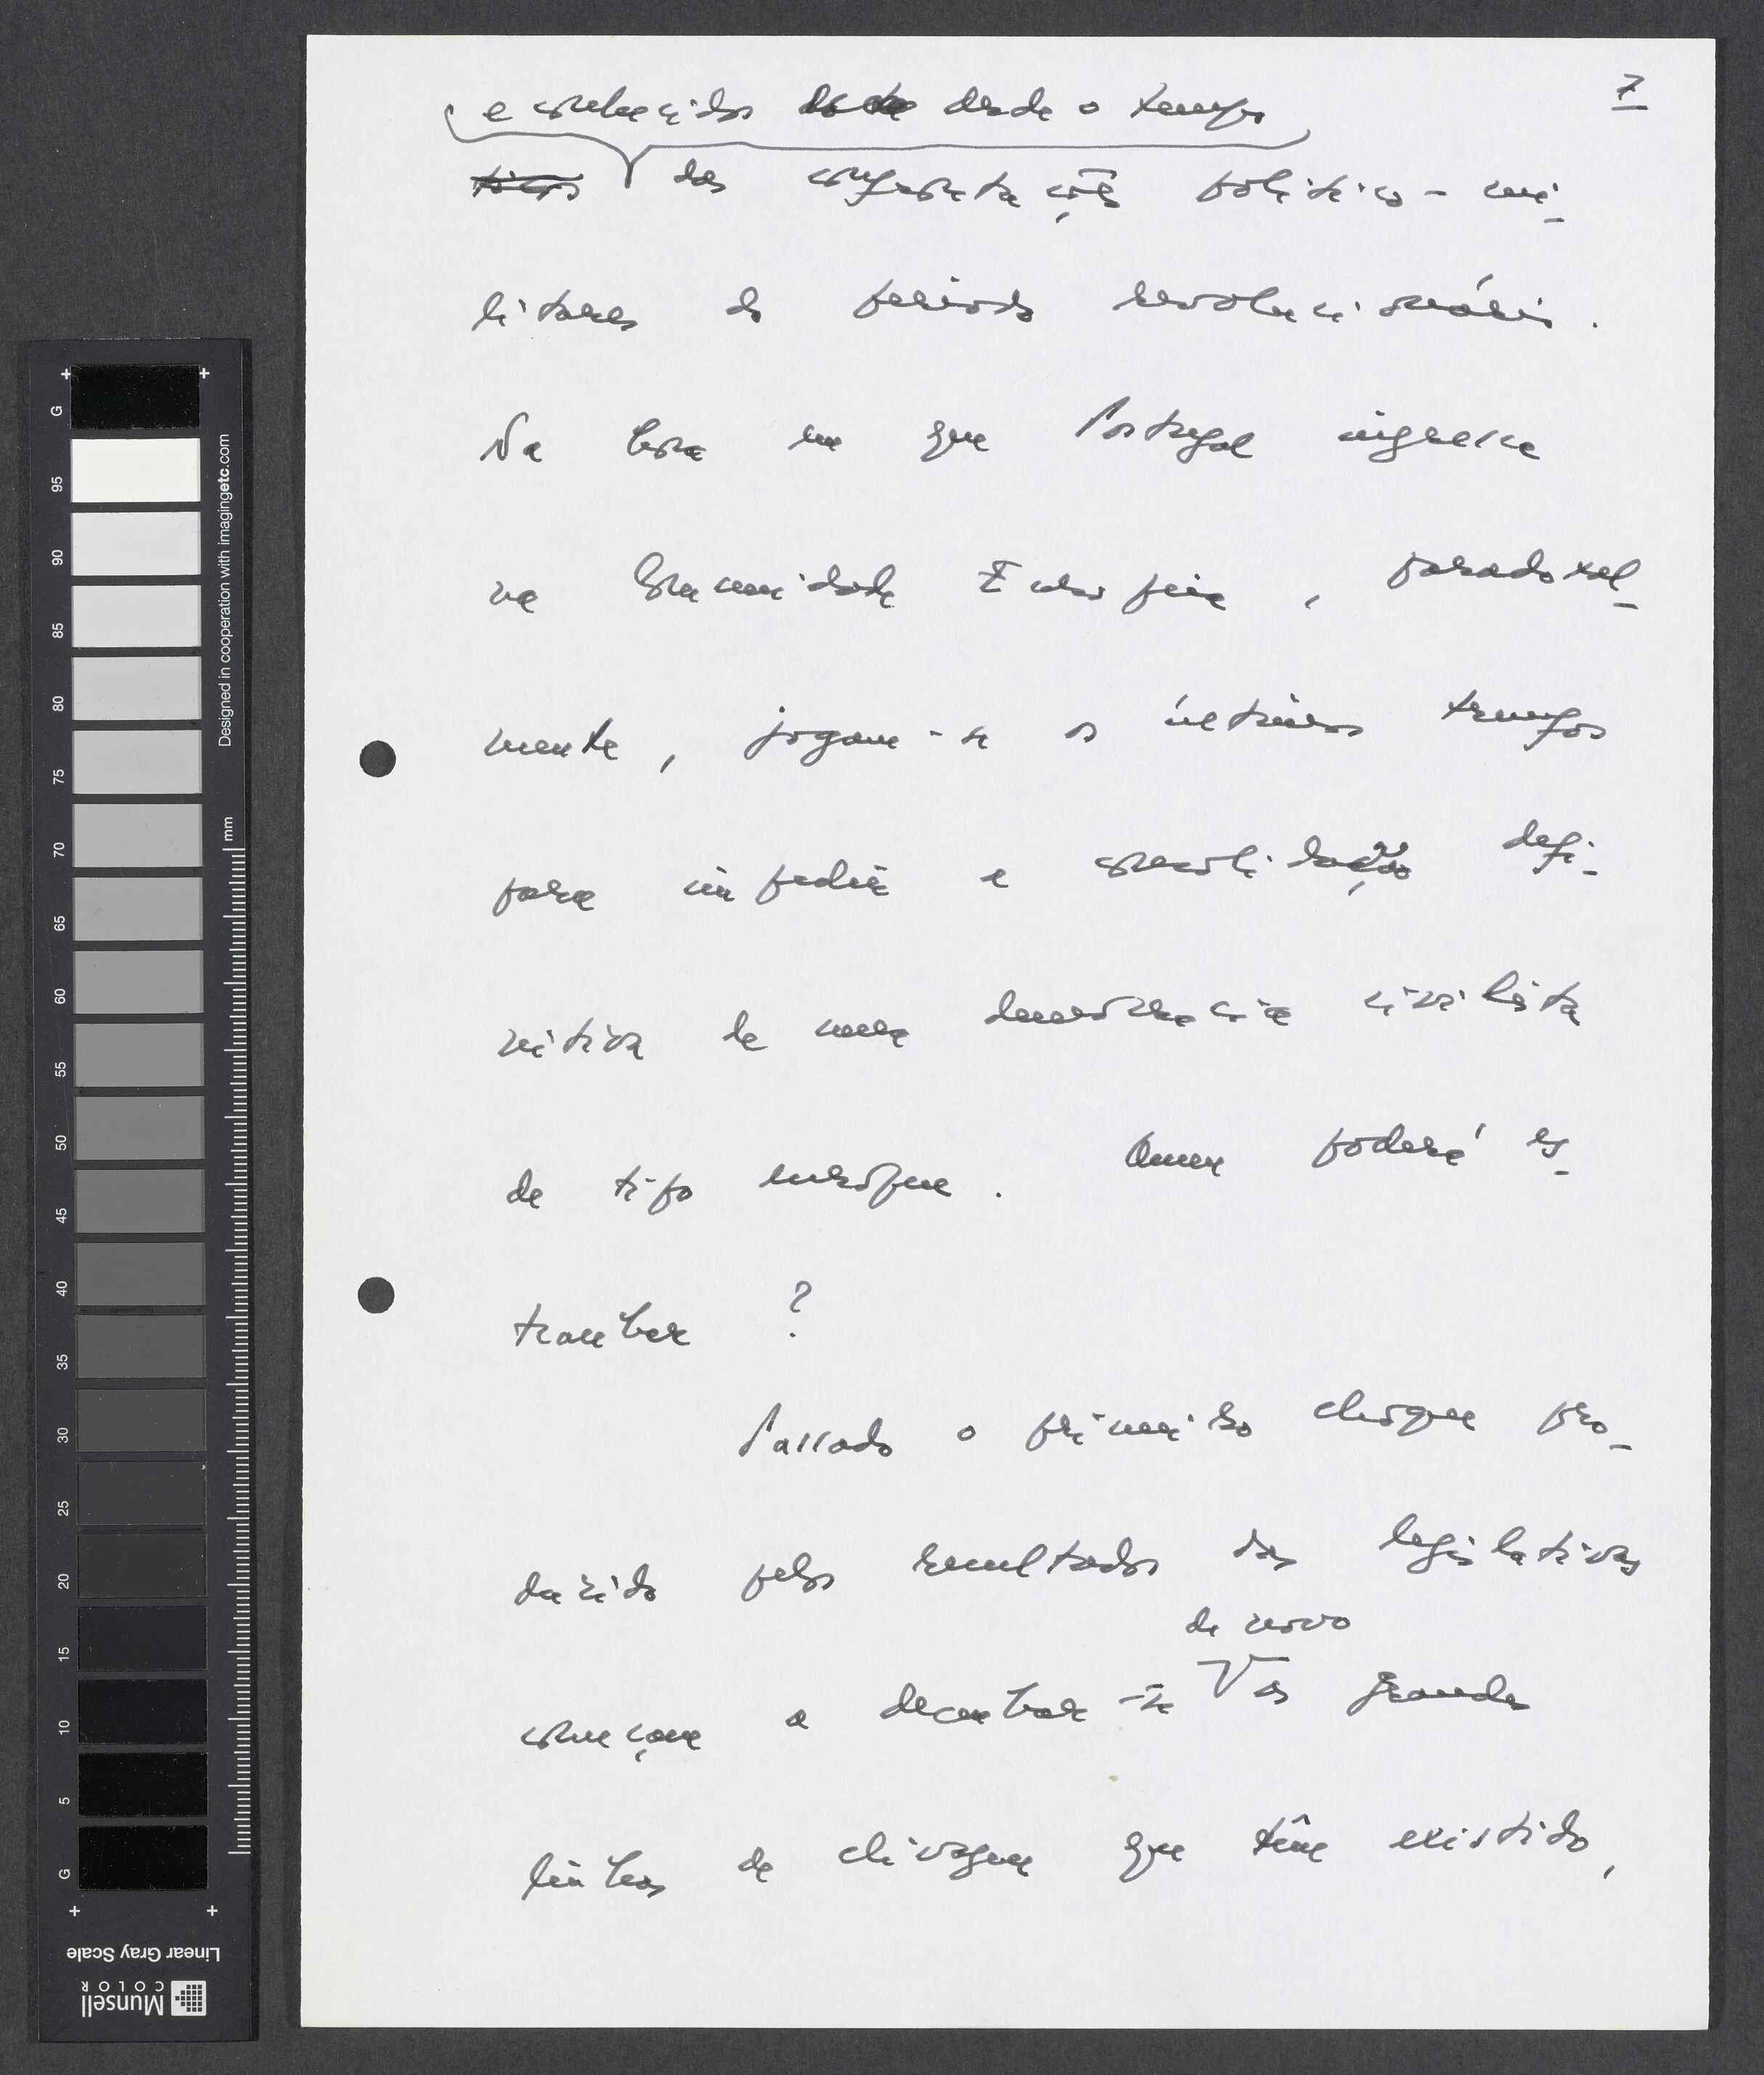 7
e conhecidos desde o tempo
das confrontações político-mi-
litares do período revolucionário.
Na hora em que Portugal ingressa
na Comunidade Europeia, paradoxal-
mente, jogam-se os últimos trunfos
para impedir a consolidação defi-
nitiva de uma democracia civilista
de tipo europeu. Quem poderá es-
tranhar?
Passado o primeiro choque pro-
duzido pelos resultados das legislativas
de novo
começam a desenhar-se as grandes
linhas de clivagem que têm existido,
+ +
G
95
90
85
80
75
70
65
60
55
50
45
40
35
30
25
20
15
10
5
G
+ +
Designed in cooperation with imagingetc.com
mm
Linear Gray Scale
Munsell
COLOR